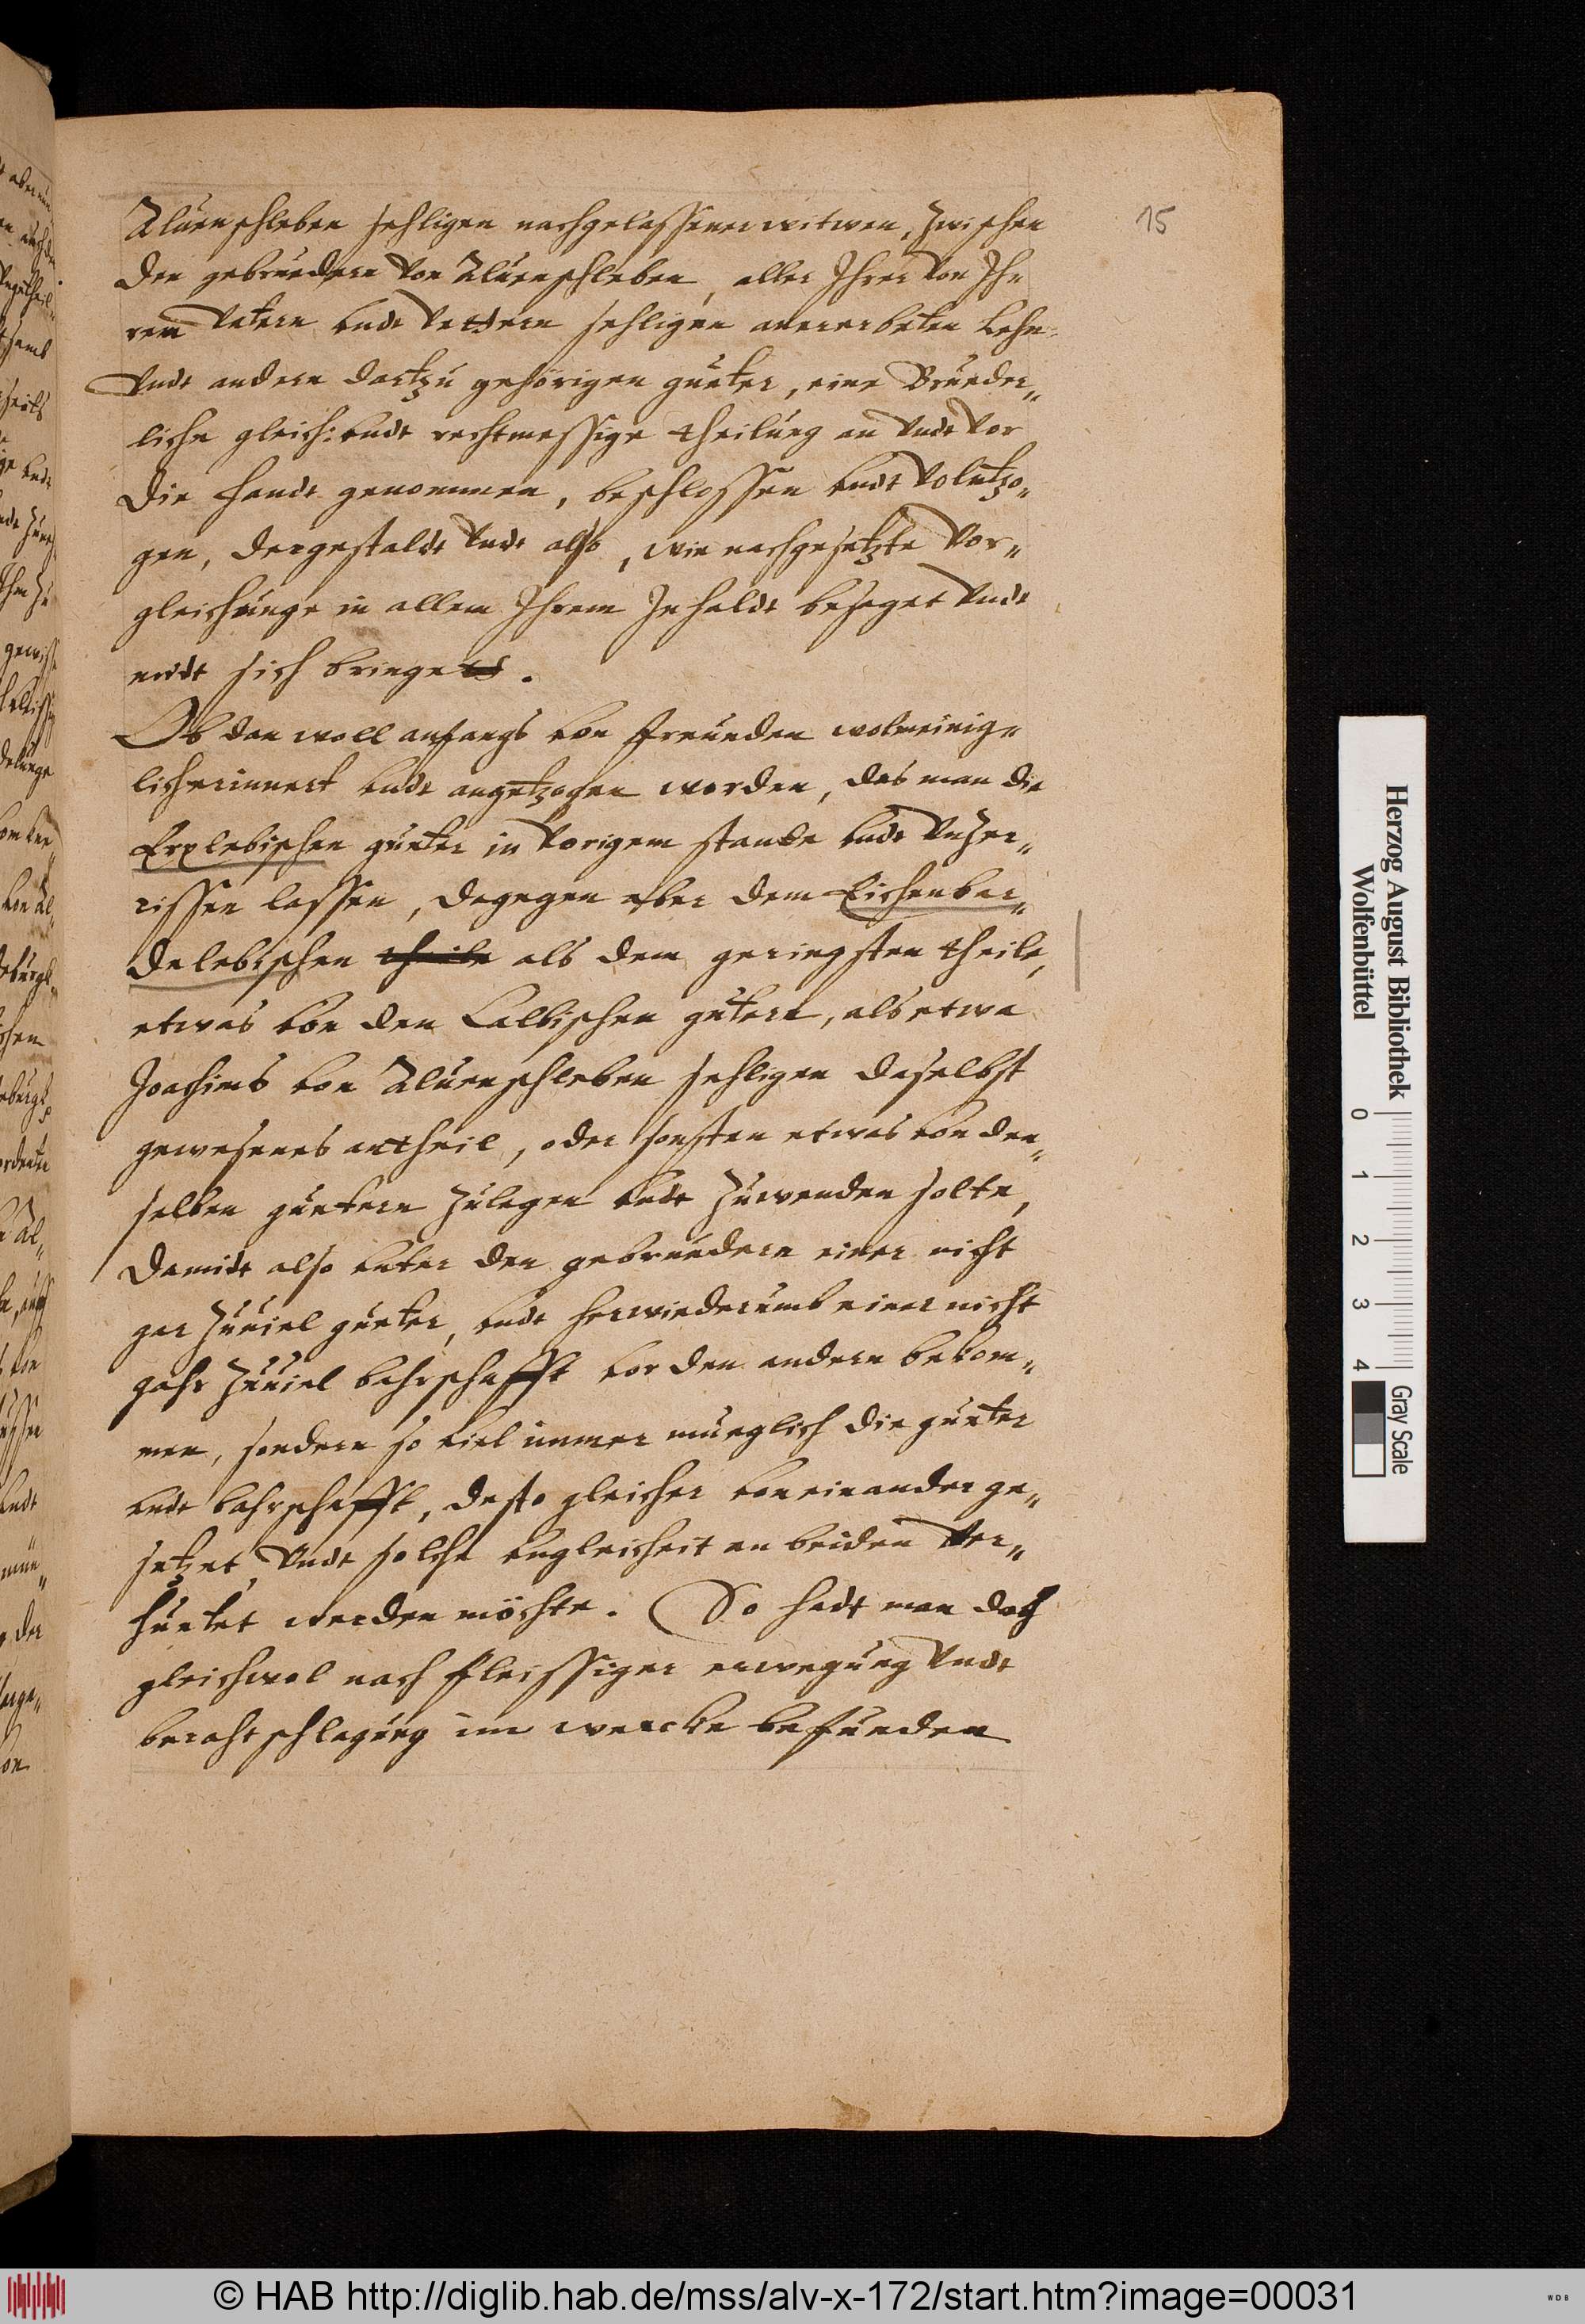 15
Aluenschleben sehligen nachgelassener witwen, zwischen
den gebruedern von Aluenschleben, aller Ihrer von Ih-
rem Vatern undt Vettern sehligen anererbeten Lehn-
Vndt andern dartzu gehörigen gueter, eine Brueder„
liche gleich: vndt rechtmessige theilung an Vndt Vor
die handt genommen, beschlossen vndt Volntzo„
gen, dergestaldt Vndt also, wie nachgesetzte Vor„
gleichunge in allem Ihrem Inhaldt besaget Vndt
midt sich bringett.
Ob dan woll anfangs von freunden wolmeinig-
licherinnert vndt angetzogen worden, das man die
Erxlebischen gueter in Vorigem stande vndt Vnzer„
rissen lassen, dagegen aber dem Eichenbar„
delebischen theile als dem geringsten theile,
etwas von den Calbischen gütern, als etwa
Joachims von Aluenschleben sehligen daselbst
gewesenes antheil, oder sonsten etwas von den„
selben guetern zulegen vndt zuwenden solte,
damidt also vnter den gebruedern einer nicht
gar zuuiel gueter, vndt herwiederumb einer nicht
gahr zuuiel bahrschafft vor den andern bekom„
men, sondern so viel immer mueglich die gueter
vndt bahrschafft, desto gleicher voneinander ge„
setzet, Vndt solche vngleicheit an beiden Ver„
huetet werden möchte. So hadt man doch
gleichwol nach fleissiger erwegung Vndt
berahtschlagung im wercke befunden
Herzog August Bibliothek
Wolfenbüttel
0 1 2 3 4
Gray Scale
© HAB http://diglib.hab.de/mss/alv-x-172/start.htm?image=00031
WDB